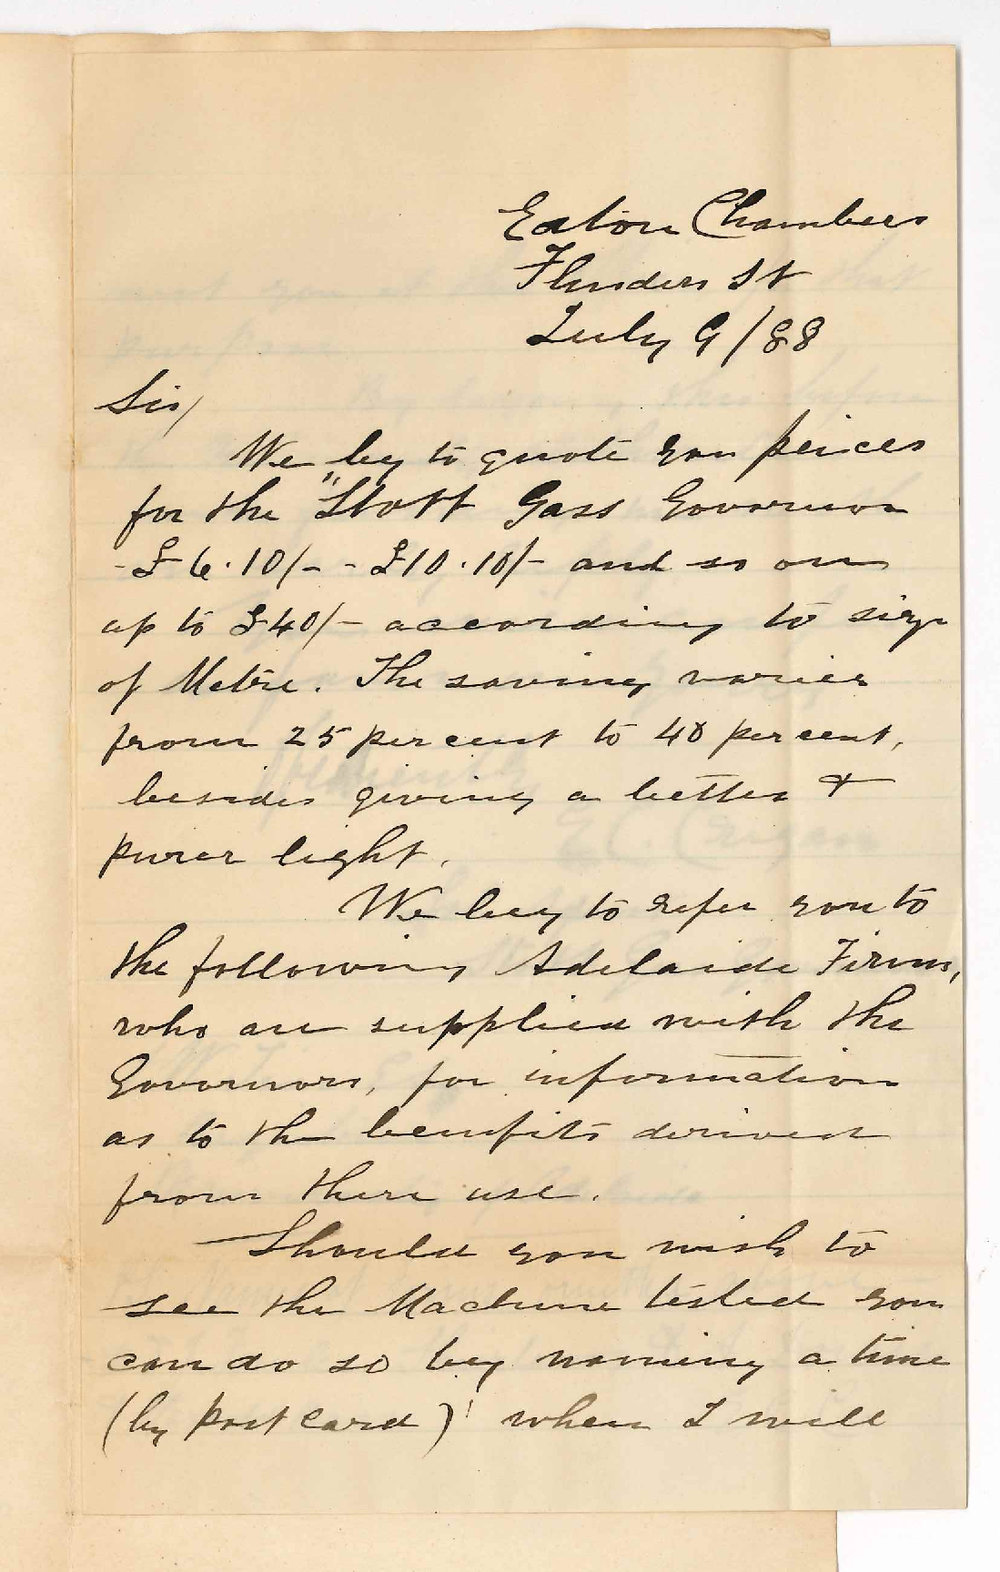 Eaton Chambers
Flinders St
July 9/88
Sir/
We beg to quote you prices
for the "Stott Gass Governor
- £6.10/- - £10.10/- and so on
up to £40/- according to size
of Metre. The saving varies
from 25 per cent to 40 per cent,
besides giving a better &
purer light.
We beg to refer you to
the following Adelaide Firms,
who are supplied with the
Governors, for information
as to the benefits derived
from there use.
Should you wish to
see the Machine tested you
can do so by naming a time
(by post card) when I will